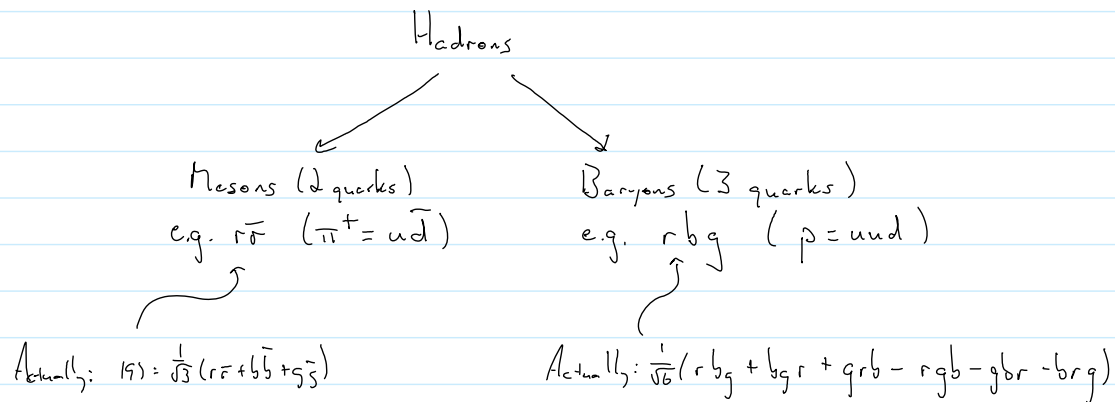 Hadrons
Mesons (2 quarks) Baryons (3 quarks)
e.g. rr̄ (π⁺ = ud̄) e.g. rbg (p = uud)
Actually: |9⟩ = 1/√3 (rr̄ + bb̄ + gḡ) Actually: 1/√6 (rbg + bgr + grb - rgb - gbr - brg)